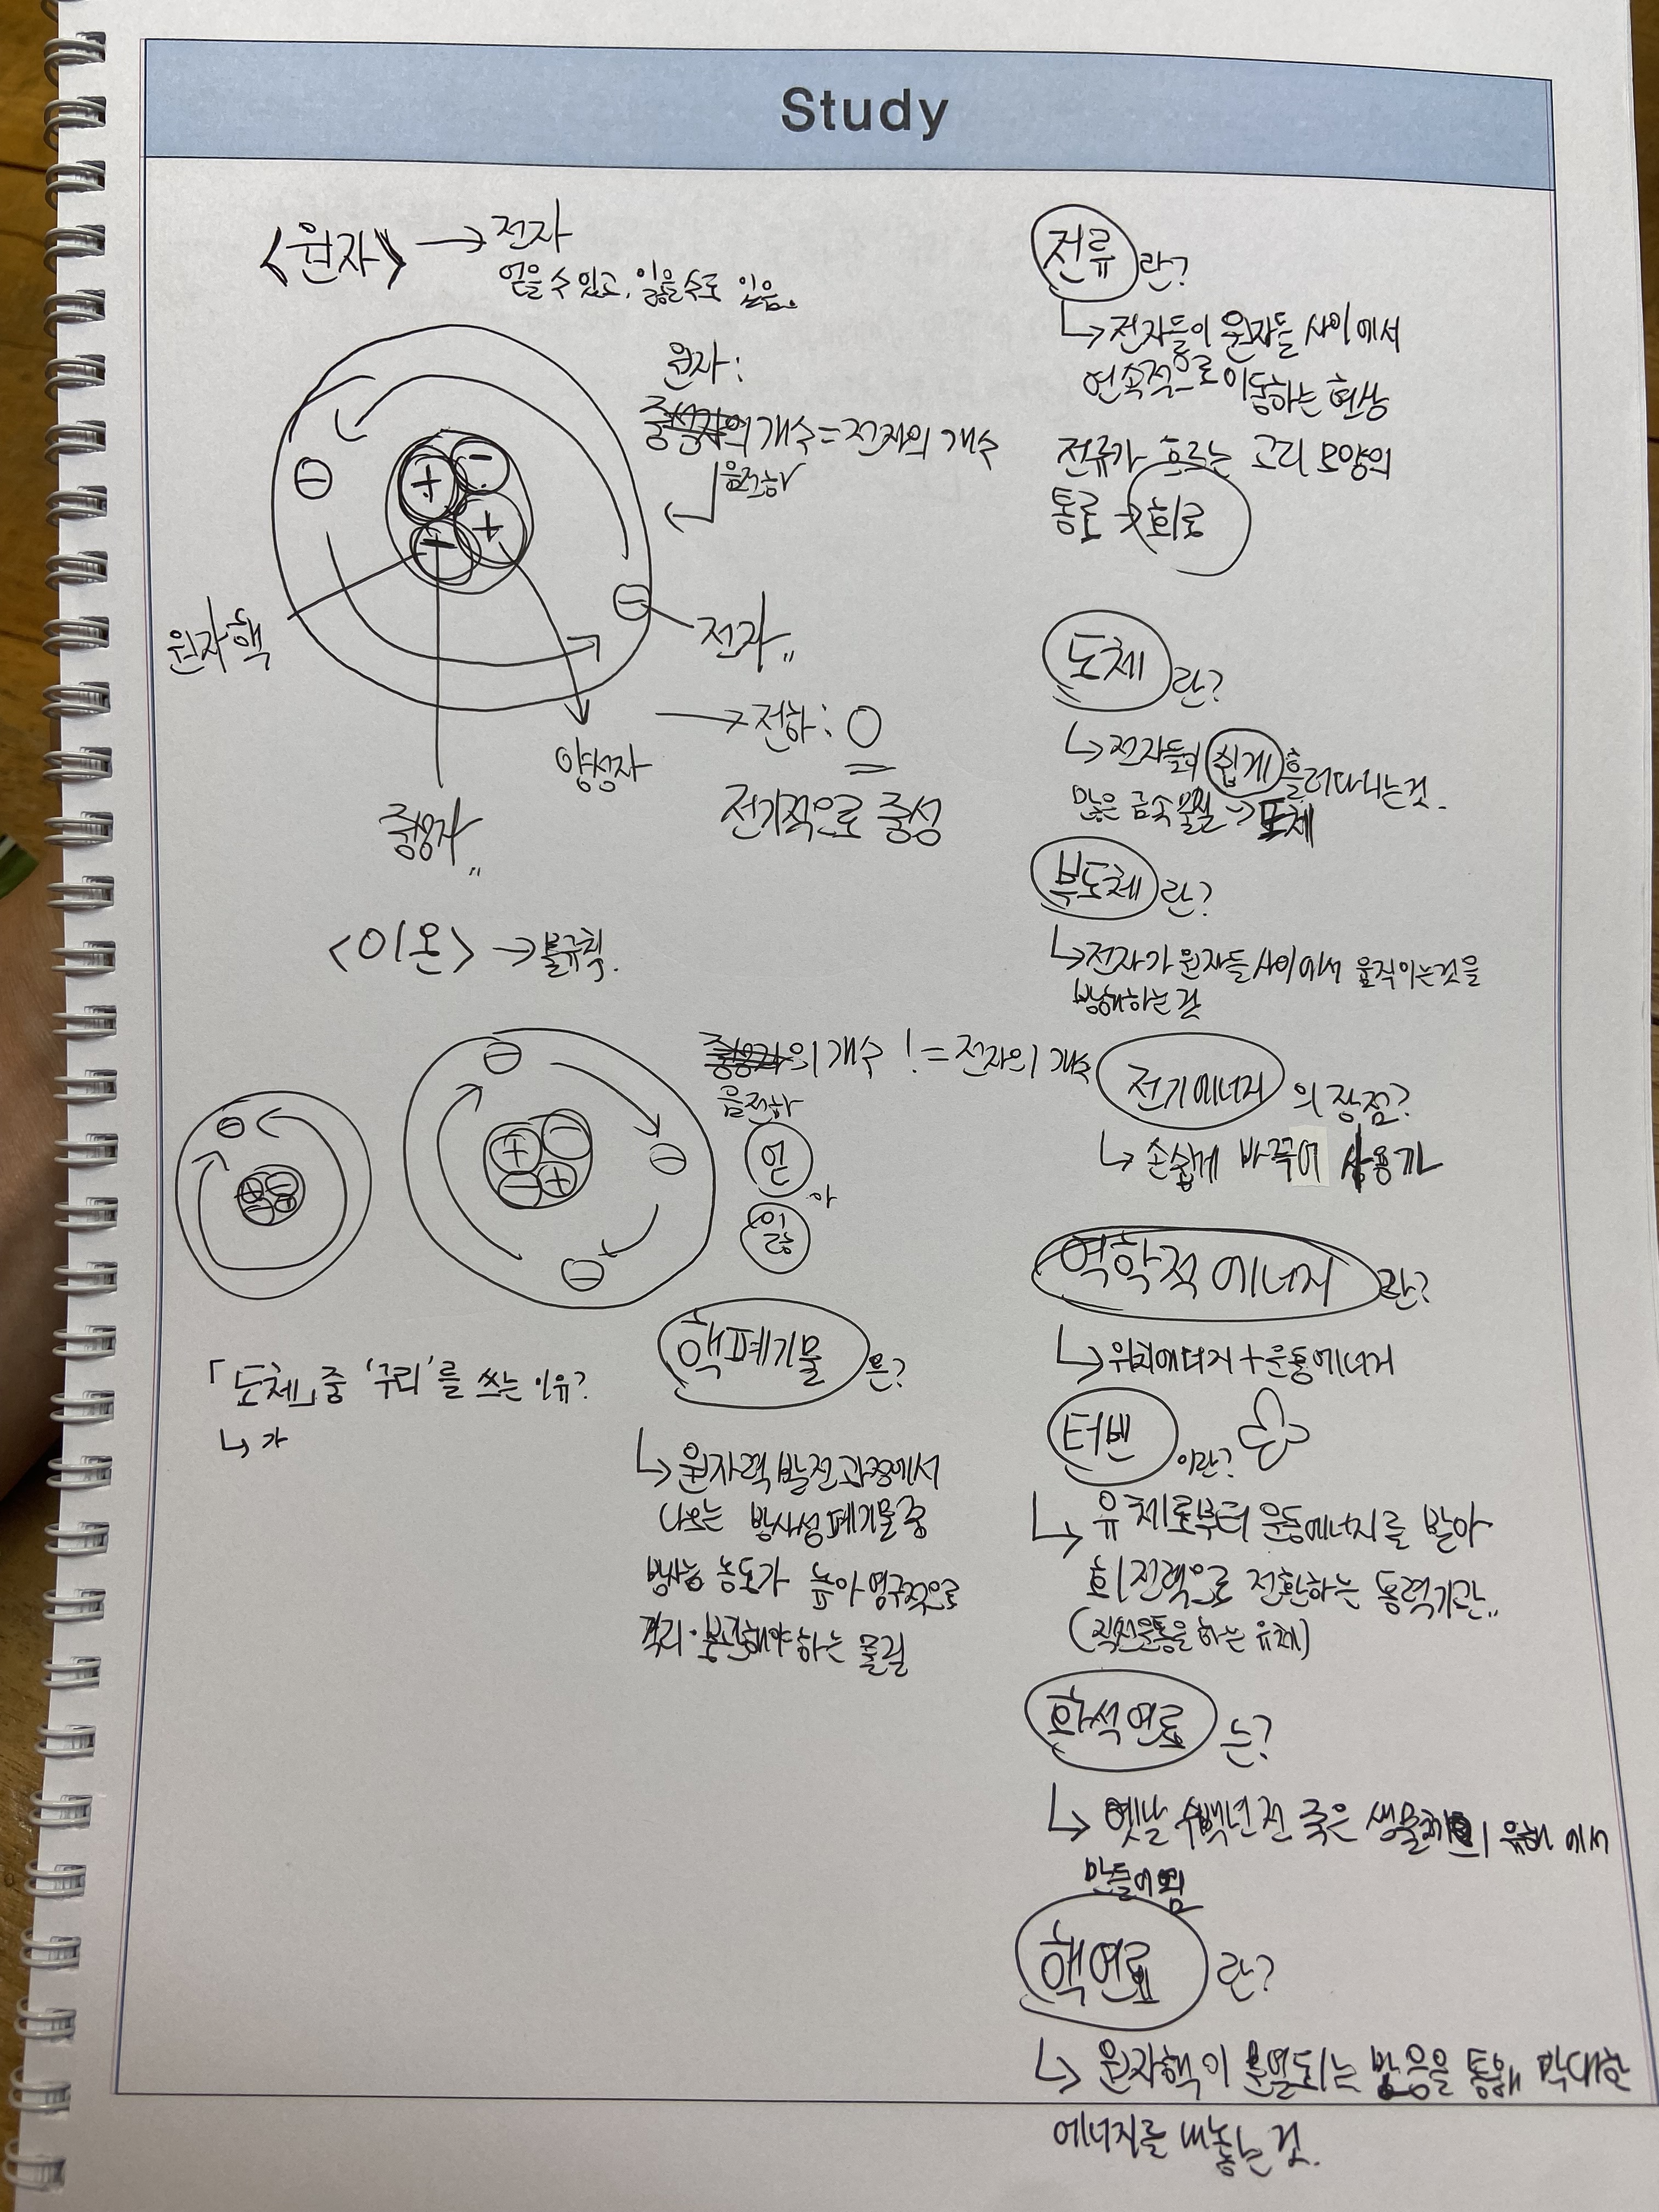 Study
<원자> → 전자
얻을 수 있고, 잃을수도 있음.
원자:
중성자의 개수 = 전자의 개수
음전하
+
-
+
-
-
-
원자핵
전자
양성자
중성자
→ 전하: 0
전기적으로 중성
<이온> → 불규칙.
중성자의 개수 != 전자의 개수
음전하
얻
아
잃
「도체」중 '구리'를 쓰는 이유?
↳ 가
핵폐기물은?
↳ 원자력 발전 과정에서
나오는 방사성 폐기물 중
방사능 농도가 높아 영구적으로
격리·보관해야 하는 물질
전류란?
↳ 전자들이 원자들 사이에서
연속적으로 이동하는 현상
전류가 흐르는 고리 모양의
통로 → 회로
도체란?
↳ 전자들이 쉽게 흘러다니는것.
많은 금속 물질 → 도체
부도체란?
↳ 전자가 원자들 사이에서 움직이는것을
방해하는 것
전기에너지의 장점?
↳ 손쉽게 바꾸어 사용가
역학적 에너지란?
↳ 위치에너지 + 운동에너지
터빈이란?
↳ 유체로부터 운동에너지를 받아
회전력으로 전환하는 동력기관
(직선운동을 하는 유체)
화석연료는?
↳ 옛날 수백년 전 죽은 유해에서
만들어짐
핵연료란?
↳ 원자핵이 분열되는 반응을 통해 막대한
에너지를 내놓는 것.